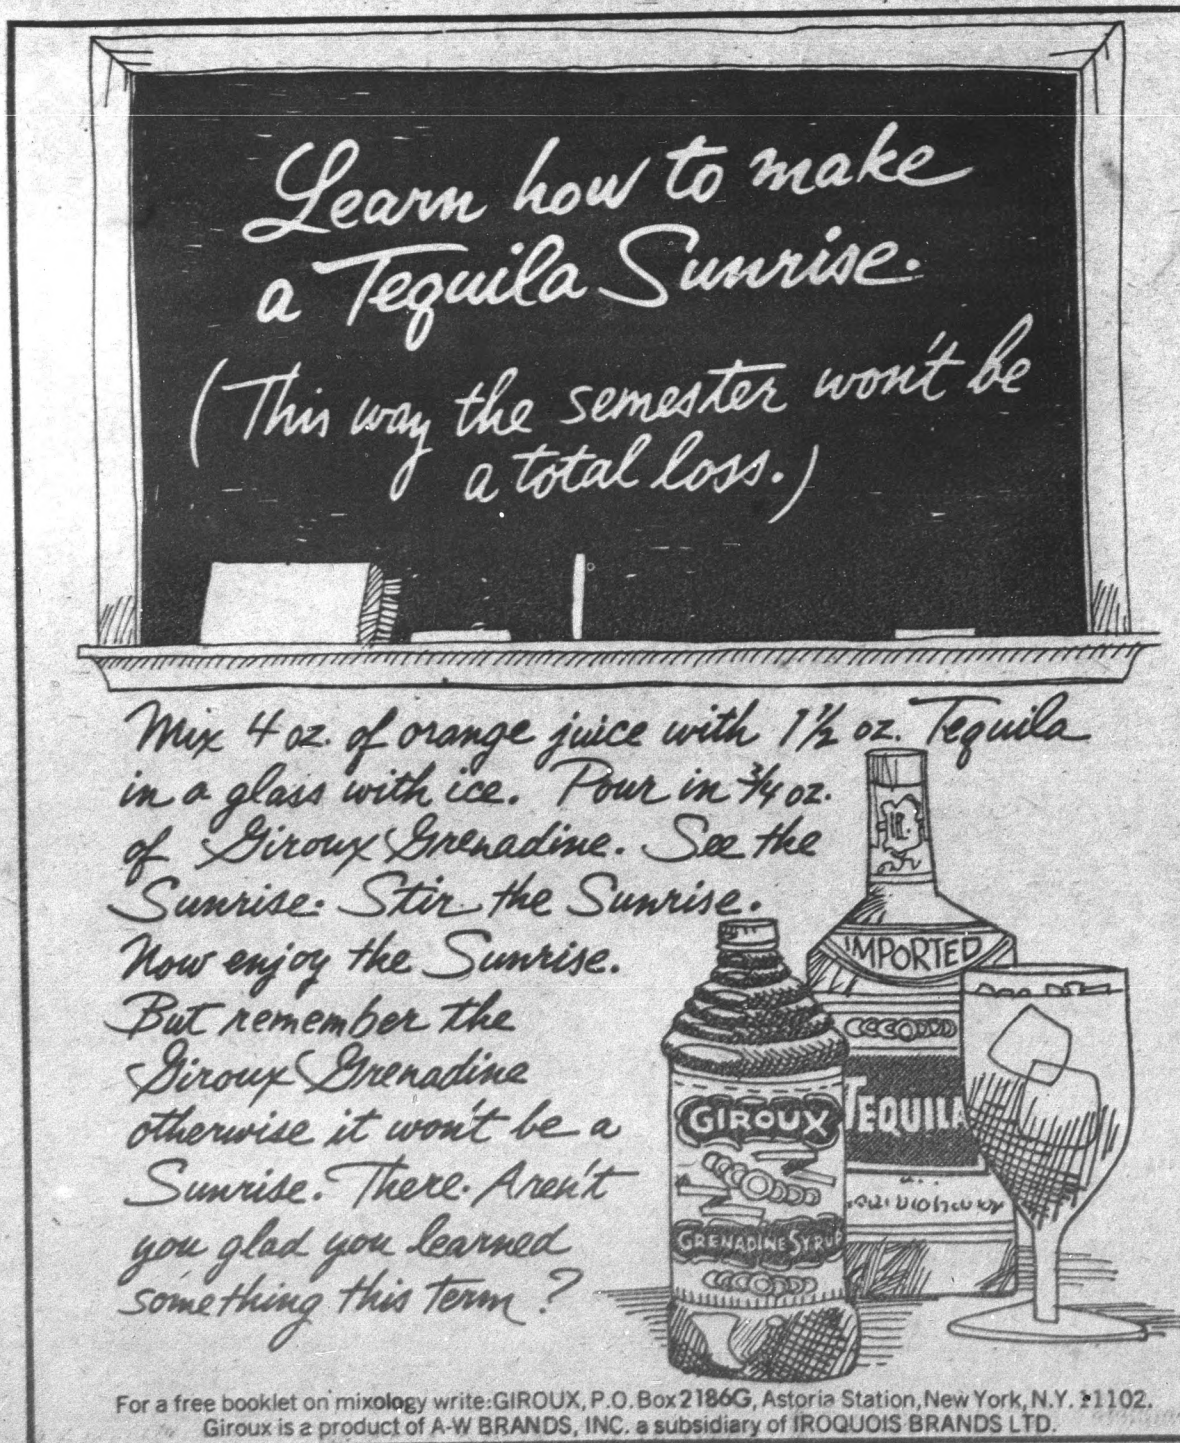 Learn how to make
a Tequila Sunrise.
(This way the semester won't be
a total loss.)
Mix 4 oz. of orange juice with 1 1/2 oz. Tequila
in a glass with ice. Pour in 3/4 oz.
of Giroux Grenadine. See the
Sunrise. Stir the Sunrise.
Now enjoy the Sunrise.
But remember the
Giroux Grenadine
otherwise it won't be a
Sunrise. There. Aren't
you glad you learned
something this term?
IMPORTED
TEQUILA
GIROUX
GRENADINE SYRUP
For a free booklet on mixology write: GIROUX, P.O. Box 2186G, Astoria Station, New York, N.Y. 11102.
Giroux is a product of A-W BRANDS, INC. a subsidiary of IROQUOIS BRANDS LTD.